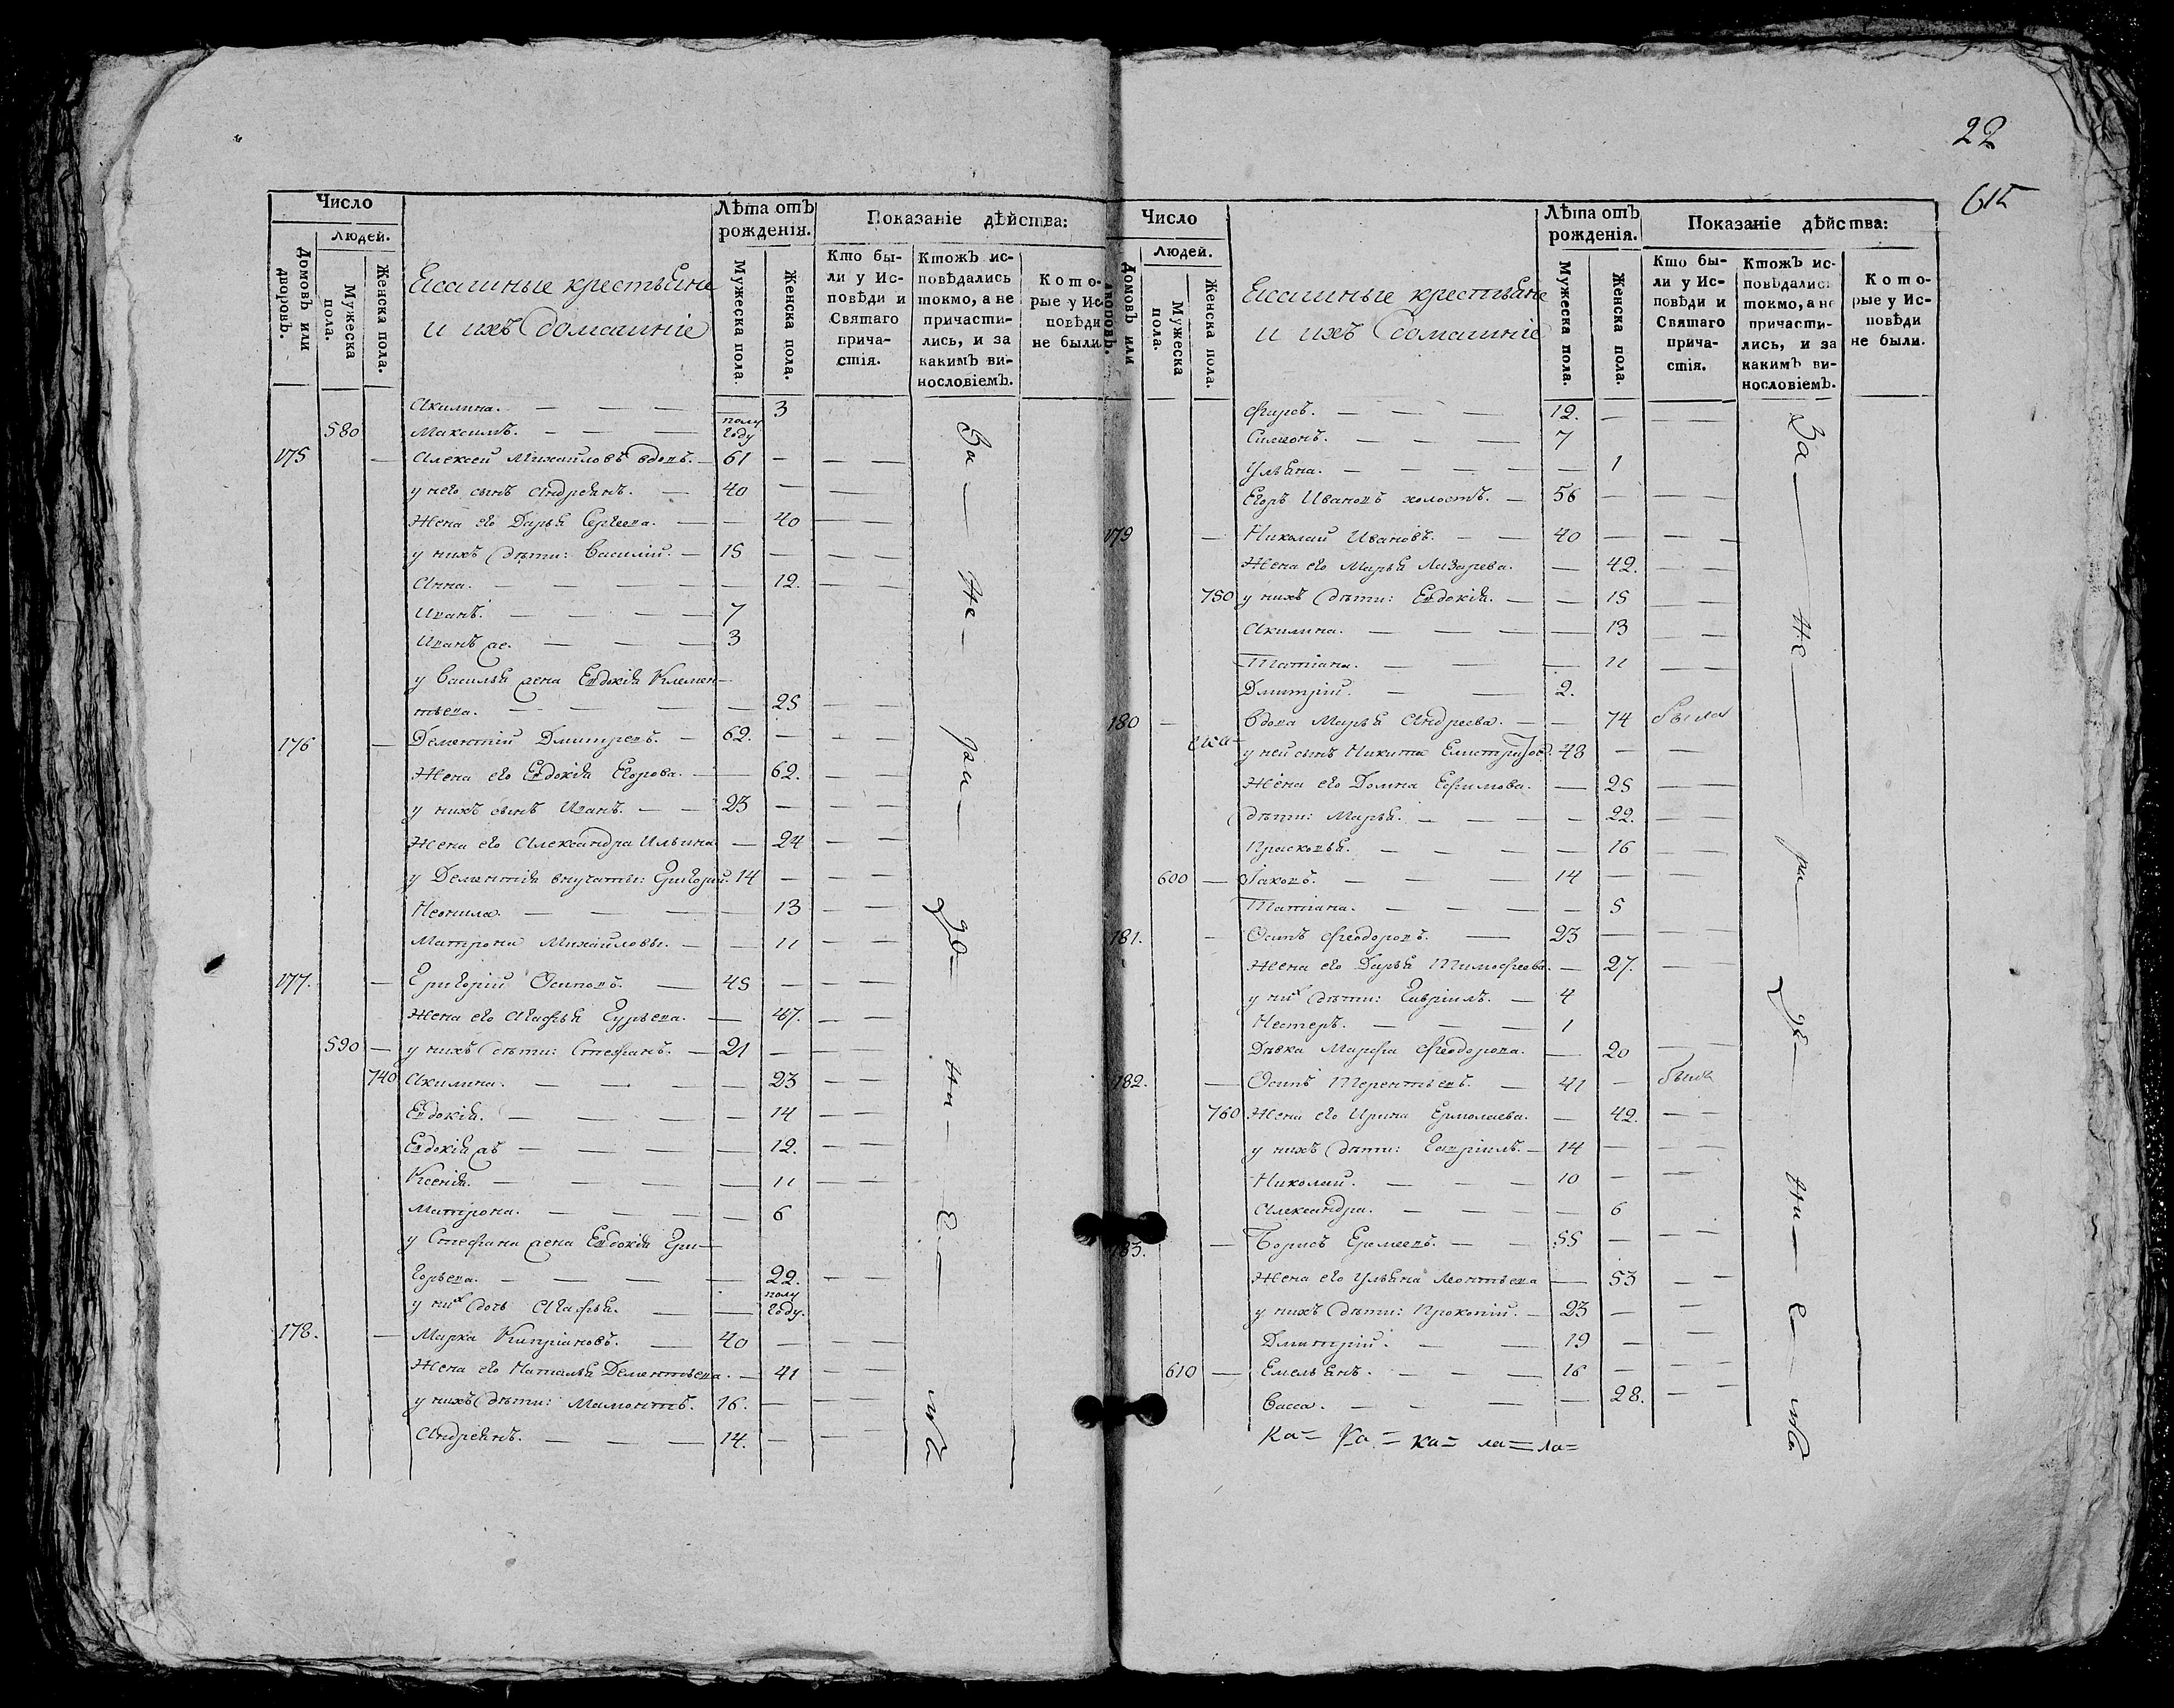 22
615
Число
Людей.
Домовъ или дворовъ.
Мужеска пола.
Женска пола.
Ясашные крестьяне
и ихъ домашнiе
Лѣта отъ
рожденія.
Мужеска пола.
Женска пола.
Показаніе дѣйства:
Кто бы-
ли у Ис-
повѣди и
Святаго
прича-
стія.
Ктожъ ис-
повѣдались
токмо, а не
причасти-
лись, и за
какимъ ви-
нословіемъ.
Кото-
рые у Ис-
повѣди
не были.
Акилина. 3
580 Максимъ. полу году
175 Алексей Михаиловъ вдовъ. 61
у него сынъ Андреянъ. 40
Жена его Дарья Сергеева. 40
у нихъ дѣти: Василій. 15
Анна. 12.
Иванъ. 7
Иванъ же. 3
у Василья жена Евдокія Клемен-
тьева. 25
176 Дементій Дмитревъ. 62.
Жена его Евдокія Егорова. 62.
у нихъ сынъ Иванъ. 23
Жена его Александра Ильина 24
у Дементія внучаты: Григорій. 14
Неонила. 13
Матрона Михаиловы. 11
177. Григорій Осиповъ. 45
Жена его Агафья Гурьева. 47.
590 у нихъ дѣти: Стефанъ. 21
740 Акилина. 23
Евдокія. 14
Евдокія жъ 12.
Ксенія. 11
Матрона. 6
у Стефана жена Евдокія Гри-
горьева. 22.
у них дочь Агафья. полу году.
178. Марка Кипріановъ. 40
Жена его Наталья Дементьева. 41
у нихъ дѣти: Мамонтъ. 16.
Андреянъ. 14.
За не ра де ні е мъ
Число
Людей.
Домовъ или дворовъ.
Мужеска пола.
Женска пола.
Ясашные крестьяне
и ихъ домашніе
Лѣта отъ
рожденія.
Мужеска пола.
Женска пола.
Показаніе дѣйства:
Кто бы-
ли у Ис-
повѣди и
Святаго
прича-
стія.
Ктожъ ис-
повѣдались
токмо, а не
причасти-
лись, и за
какимъ ви-
нословіемъ.
Кото-
рые у Ис-
повѣди
не были.
Фирсъ. 12.
Симеонъ. 7
Ульяна. 1
Егоръ Ивановъ холостъ. 56
179 Николай Ивановъ. 40
Жена его Марья Лазарева. 42.
750 у нихъ дѣти: Евдокія. 15
Акилина. 13
Татіана. 11
Дмитрій. 2.
180 Вдова Марья Андреева. 74 была
у ней сынъ Никита 48
Жена его Домна Ефимова. 25
дѣти: Марья. 22.
Прасковья. 16
600 Іаковъ. 14
Татіана. 5
181. Осипъ Феодоровъ. 23
Жена его Дарья Тимофеева. 27.
у них дѣти: Гавріилъ. 4
Нестеръ. 1
Дѣвка Марфа Феодорова. 20
182. Осипъ Терентьевъ. 41 былъ
760 Жена его Ирина Ермолаева. 42.
у нихъ дѣти: Гавріилъ. 14
Николай. 10
Александра. 6
183. Борисъ Еремеевъ. 55
Жена его Ульяна Леонтьева 53
у нихъ дѣти: Прокопій. 23
Дмитрій. 19
610 Емельянъ. 16
Васса. 28.
За не ра де ні е мъ